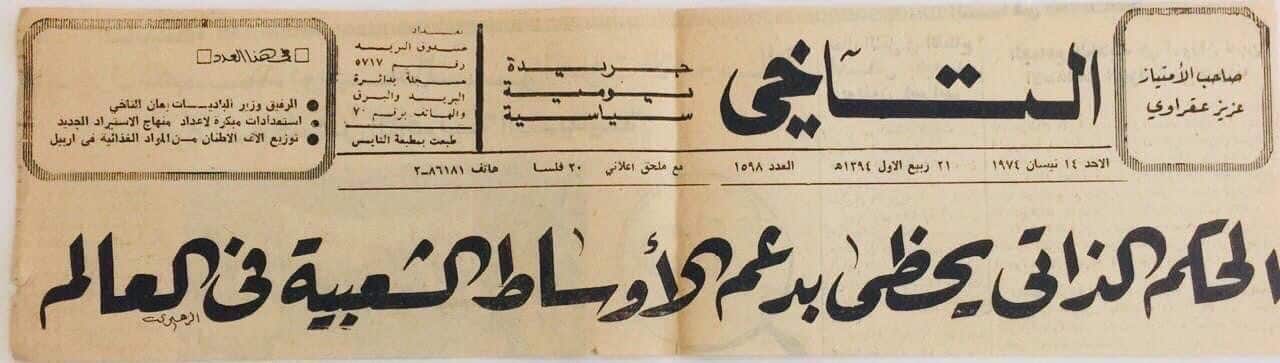 صاحب الأمتياز
عزيز عقراوي
التآخي
جريدة
يومية
سياسية
بغداد
صندوق البريد
رقم ٥٧١٧
مسجلة بدائرة
البريد والبرق
والهاتف برقم ٧٠
طبعت بمطبعة التايمس
في هذا العدد
الرفيق وزير البلديات يهان التاخي
استعدادات مبكرة لاعداد منهاج الاستيراد الجديد
توزيع الاف الاطنان من المواد الغذائية في اربيل
الاحد ١٤ نيسان ١٩٧٤ ٢١ ربيع الاول ١٣٩٤هـ العدد ١٥٩٨ مع ملحق اعلاني ٢٠ فلسا هاتف ٨٦١٨١-٢
الحكم الذاتي يحظى بدعم الأوساط الشعبية في العالم
الزهيري